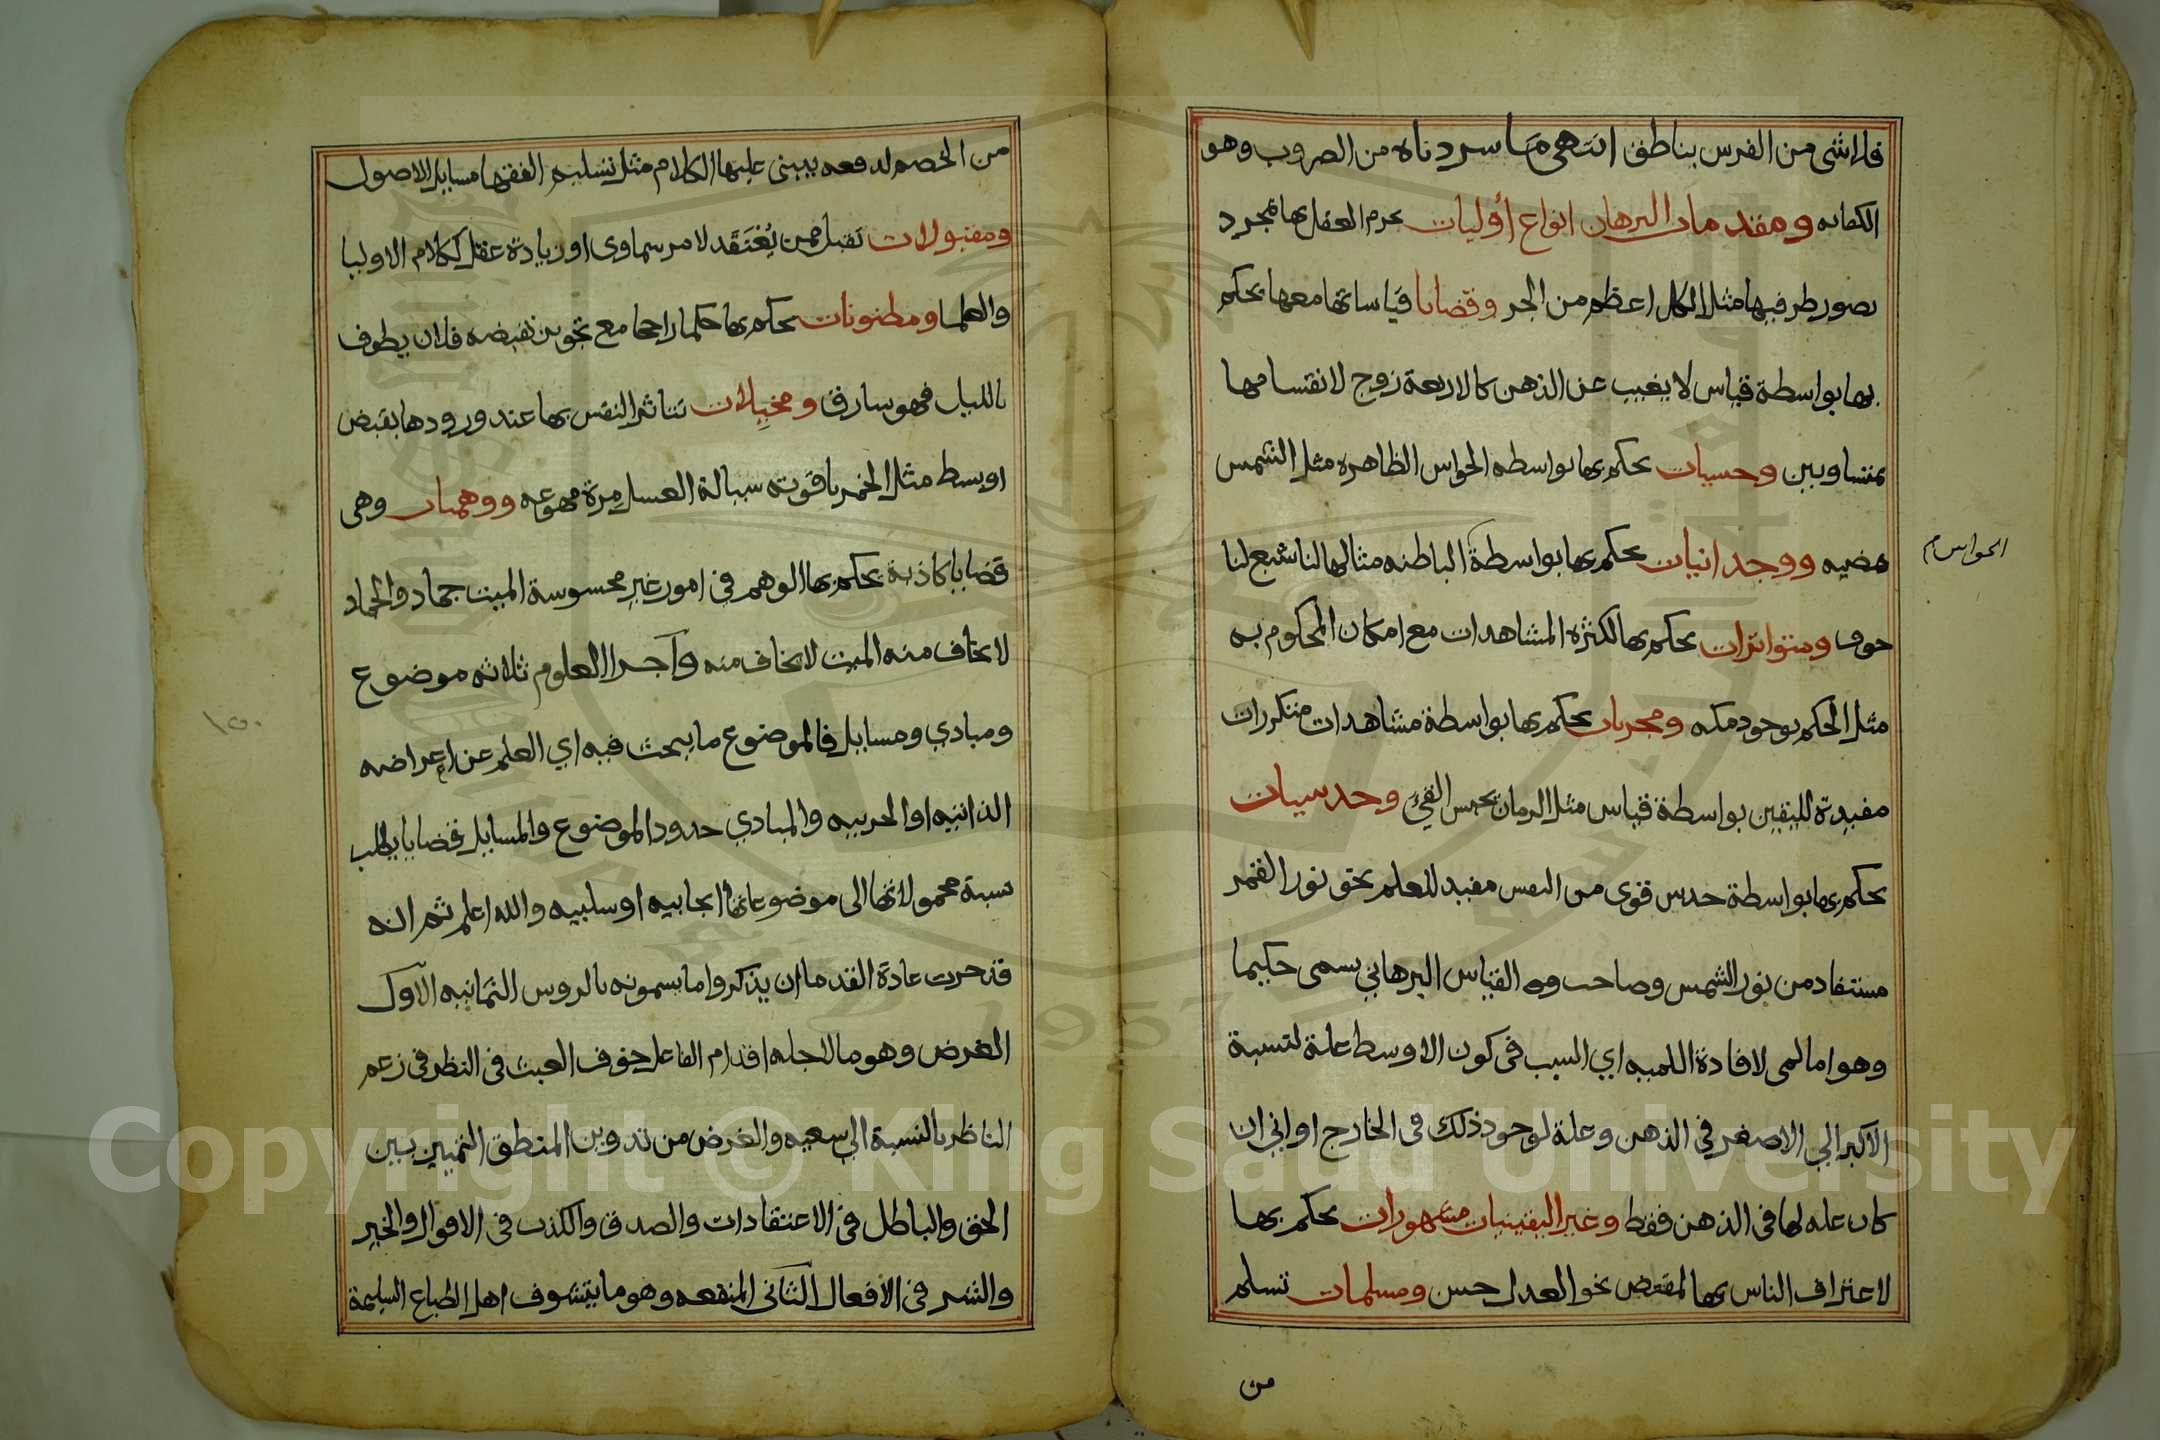 فلا شى من الفرس بناطق انتهى ما سردناه من الضروب وهو
الكفايه ومقدمات البرهان انواع أوليات يجزم العقل بها بمجرد
تصور طرفيها مثل الكل اعظم من الجز وقضايا قياساتها معها يحكم
بها بواسطة قياس لا يغيب عن الذهن كالاربعة زوج لانقسامها
بمتساويين وحسيات يحكم بها بواسطه الحواس الظاهره مثل الشمس
مضيه ووجدانيات يحكم بها بواسطة الباطنه مثالها لنا شبع لنا
الحواس م
خوف ومتواترات يحكم بها لكثره المشاهدات مع امكان المحكوم به
مثل الحكم بوجود مكه ومجربات يحكم بها بواسطة مشاهدات متكررات
مفيدة لليقين بواسطة قياس مثل الرمان يحبس القئ وحدسيات
يحكم بها بواسطة حدس قوى من النفس مفيد للعلم نحو نور القمر
مستفاد من نور الشمس وصاحب القياس البرهاني يسمى حكيما
وهو اما لمى لافادة اللميه اي السبب فى كون الاوسط علة لنسبة
الاكبر الي الاصغر في الذهن وعلة لوجود ذلك فى الخارج او اني ان
كان علة لها فى الذهن فقط وغير اليقينيات مشهورات يحكم بها
لاعتراف الناس بها لمقتض نحو العدل حسن ومسلمات تسلم
من
من الخصم لدفعه يبنى عليها الكلام مثل تسليم الفقها مسايل الاصول
ومقبولات تقبل ممن يُعْتَقَد لامر سماوى او زيادة عقل ككلام الاوليا
والعلما ومظنونات يحكم بها حكما راجحا مع تجويز نقيضه فلان يطوف
بالليل فهو سارق ومخيلات تتاثر النفس بها عند ورودها بقبض
او بسط مثل الخمر ياقوته سيالة العسل مرة مهوعه ووهميات وهى
قضايا كاذبة يحكم بها الوهم في امور غير محسوسة الميت جماد والجماد
لا يخاف منه الميت لا يخاف منه وآجزا العلوم ثلاثه موضوع
ومبادي ومسايل فالموضوع ما يبحث فيه اي العلم عن اعراضه
الذاتيه او الحريبه والمبادي حدود الموضوع والمسايل قضايا يطلب
نسبة محمولاتها الى موضوعاتها ايجابيه او سلبيه والله اعلم ثم انه
قد جرت عادة القدما ان يذكروا ما يسمونه بالروس الثمانيه الاول
الغرض وهو ما لاجله اقدام الفاعل خوف العبث فى النظر فى زعم
الناظر بالنسبة الي سعيه والغرض من تدوين المنطق التمييز بين
الحق والباطل فى الاعتقادات والصدق والكذب فى الاقوال والخير
والشر فى الافعال الثانى المنفعه وهو ما يتشوف اهل الطباع السليمة
Copyright © King Saud University
1957